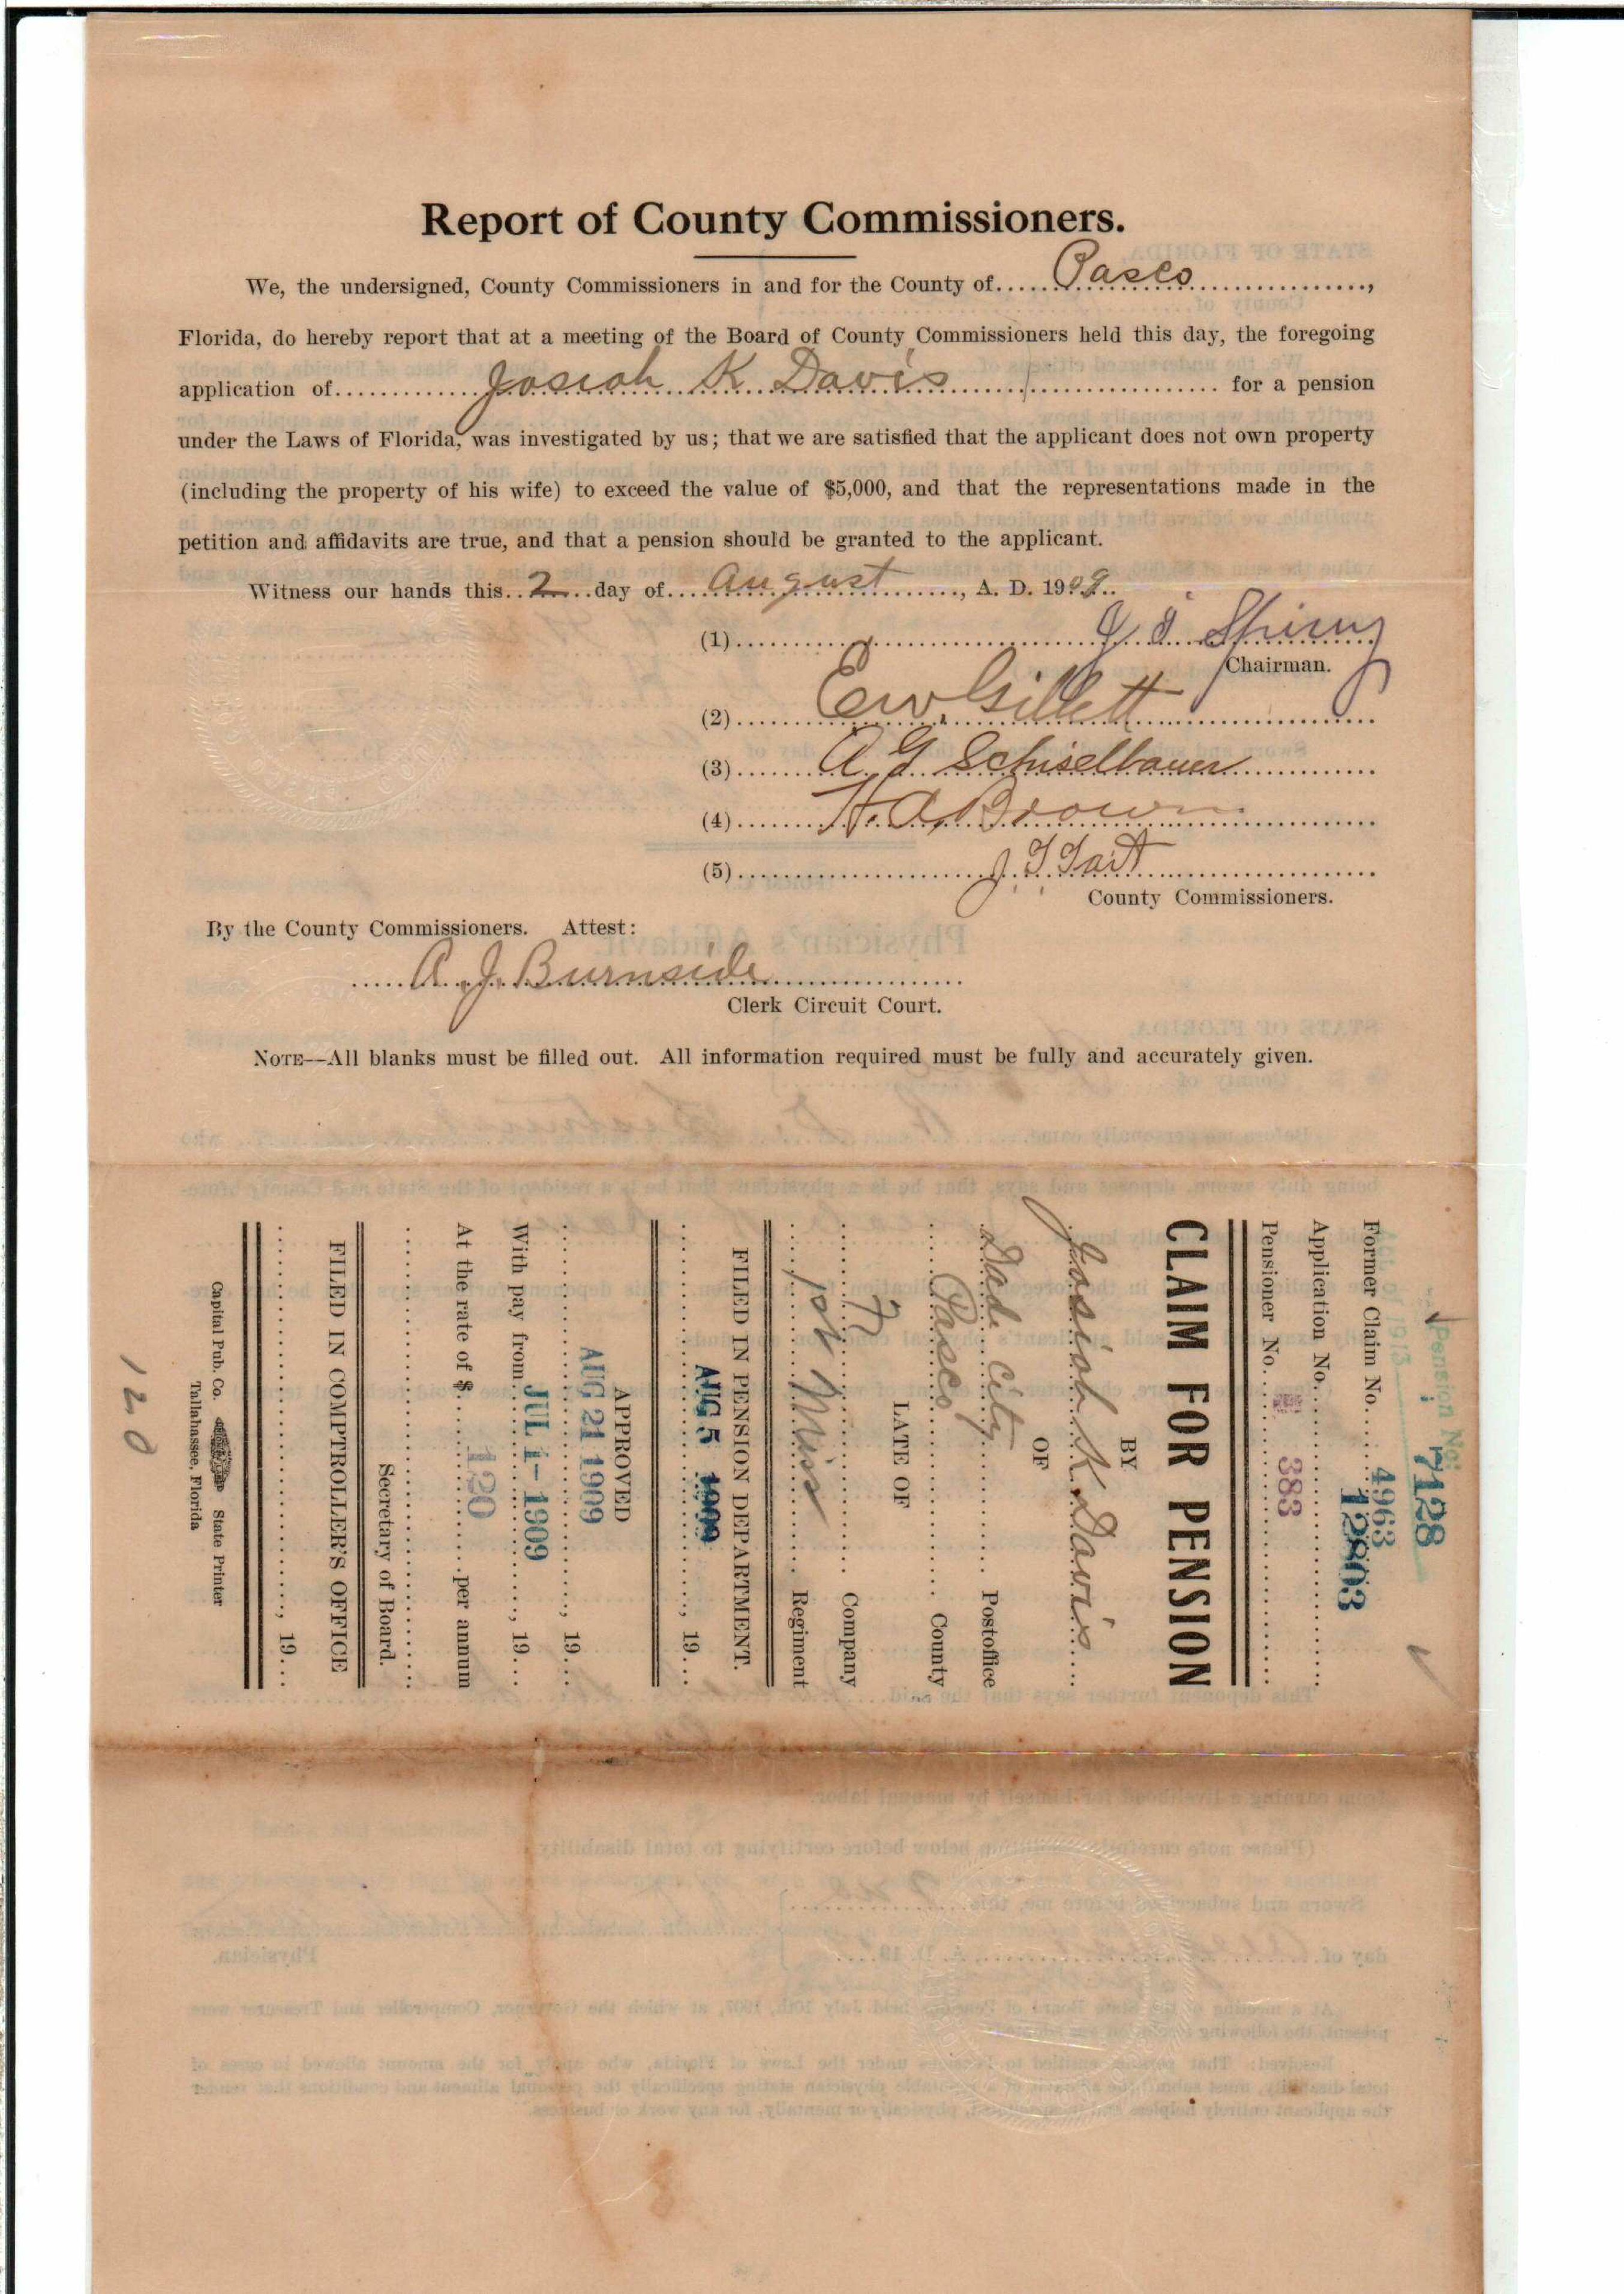 Report of County Commissioners.
We, the undersigned, County Commissioners in and for the County of Pasco,
Florida, do hereby report that at a meeting of the Board of County Commissioners held this day, the foregoing
application of Josiah K Davis for a pension
under the Laws of Florida, was investigated by us; that we are satisfied that the applicant does not own property
(including the property of his wife) to exceed the value of $5,000, and that the representations made in the
petition and affidavits are true, and that a pension should be granted to the applicant.
Witness our hands this 2 day of August, A. D. 1909.
(1)
Chairman.
(2) E W Gillett
(3) A G Schiselbauer
(4) H. A. Brown
(5) J. T. Tait
County Commissioners.
By the County Commissioners. Attest:
A. J. Burnside
Clerk Circuit Court.
NOTE--All blanks must be filled out. All information required must be fully and accurately given.
Pension No. 7128
Former Claim No. 4963
12803
Application No.
Pensioner No. 383
CLAIM FOR PENSION
BY
Josiah K. Davis
OF
Dade City Postoffice
Pasco County
LATE OF
Company
1st Miss Regiment
FILED IN PENSION DEPARTMENT.
AUG 5 1909, 19
APPROVED
AUG 21 1909, 19
With pay from JUL 1- 1909, 19
At the rate of $ 120 per annum
Secretary of Board.
FILED IN COMPTROLLER'S OFFICE
, 19
Capital Pub. Co. State Printer
Tallahassee, Florida
120